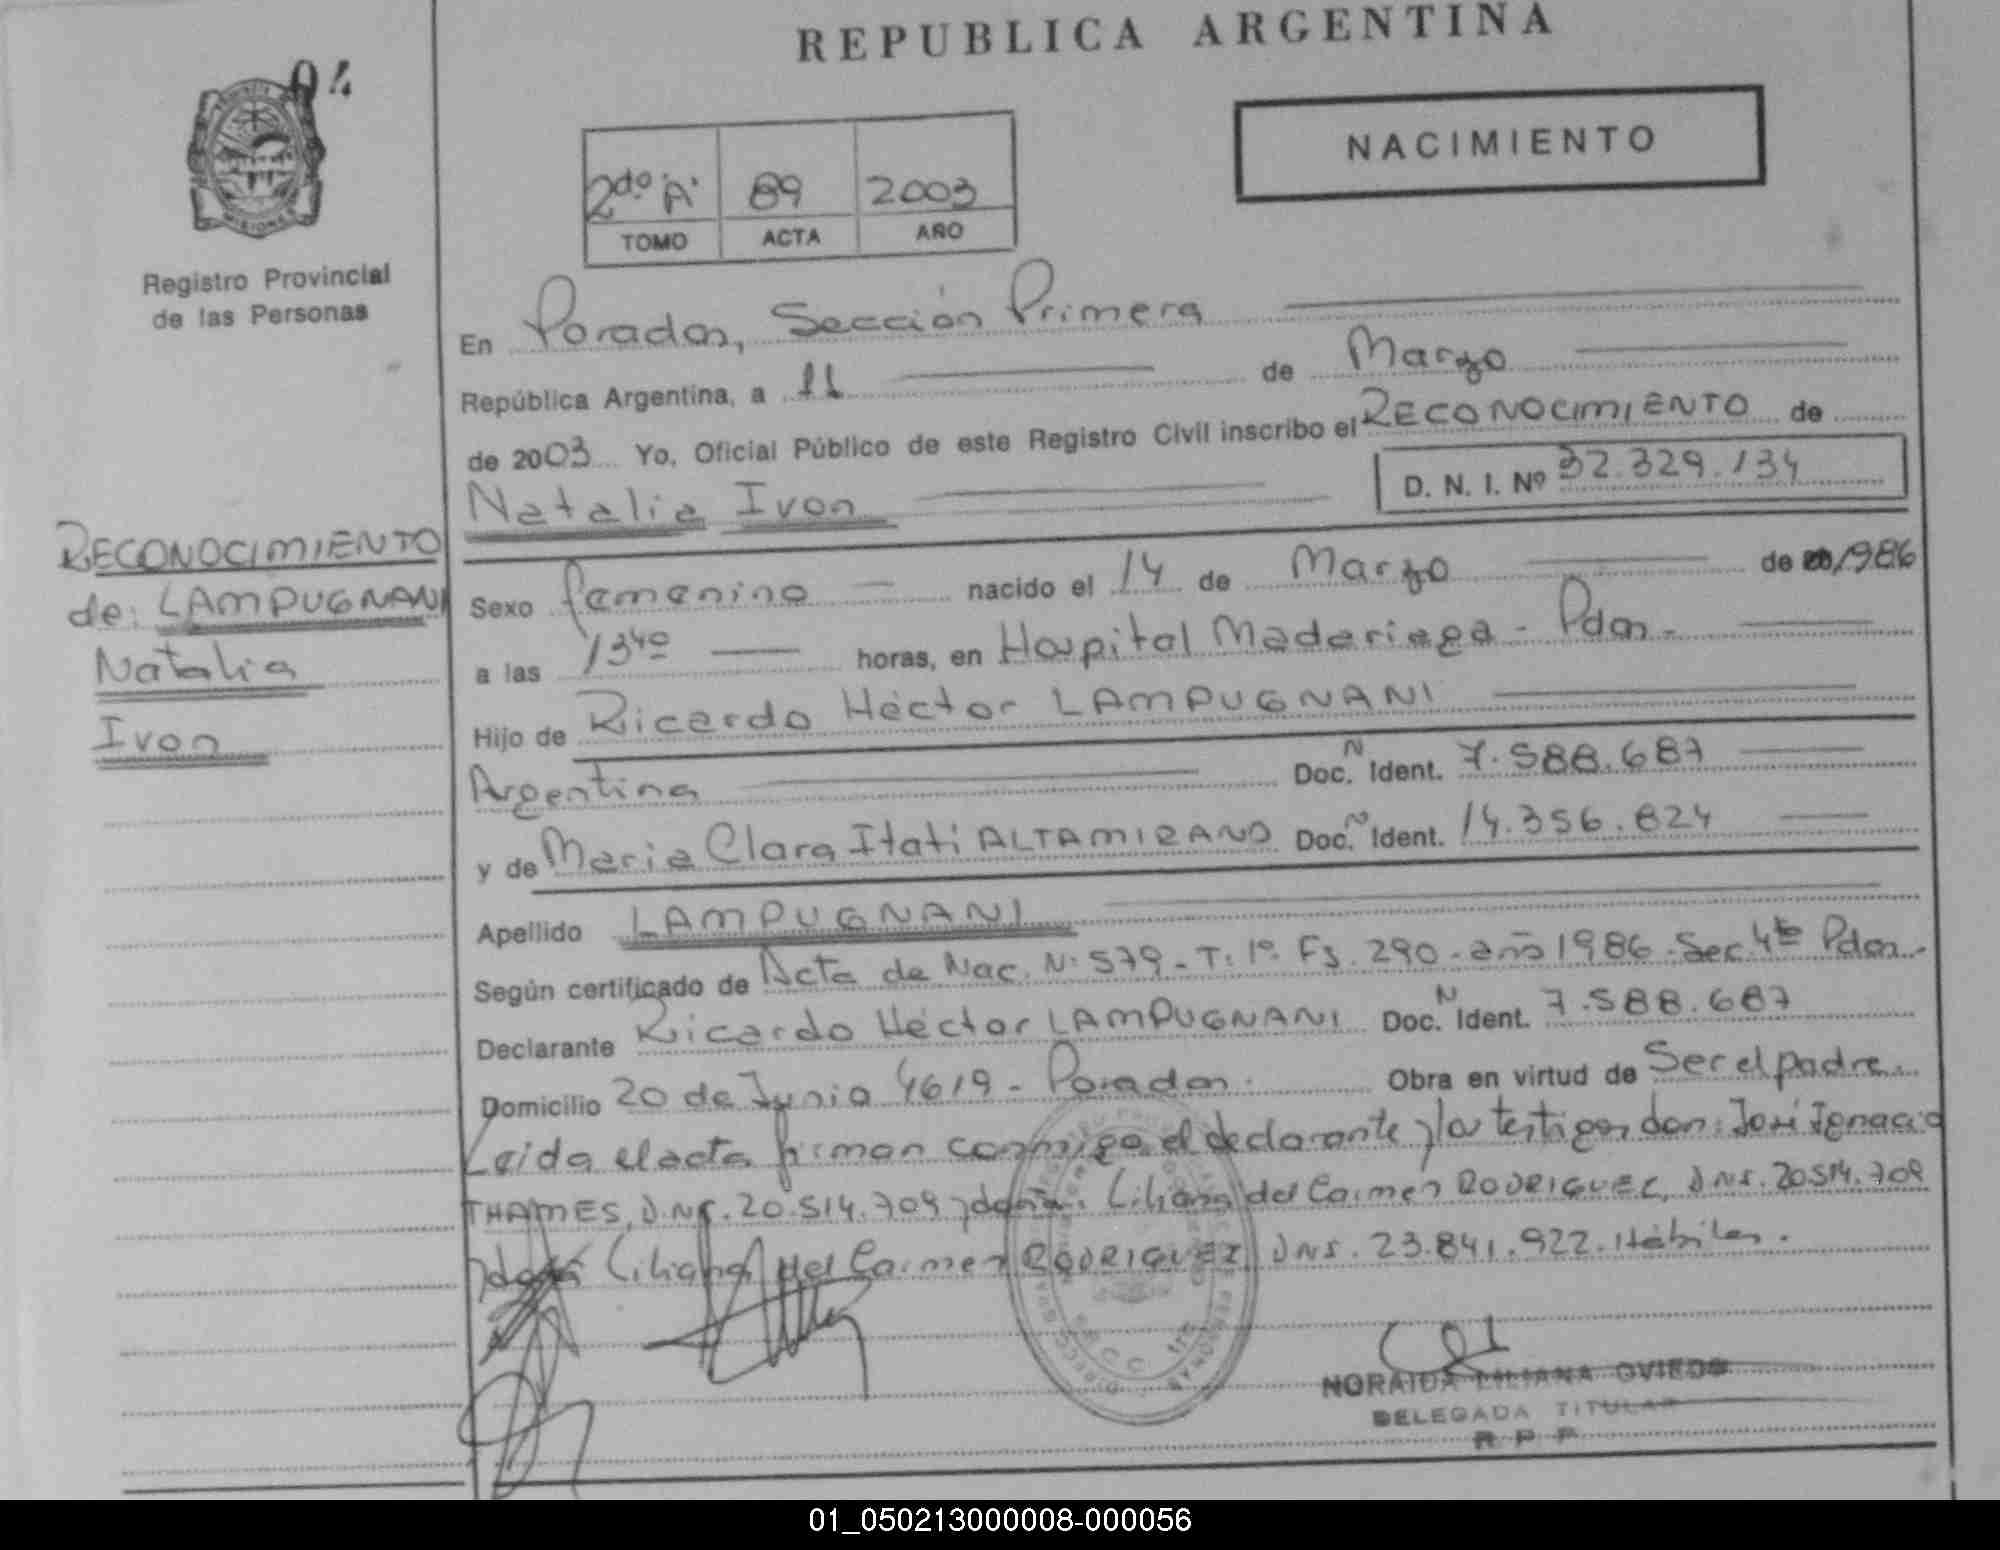 REPUBLICA ARGENTINA
04
MISIONES
Registro Provincial
de las Personas
NACIMIENTO
2do "A" 89 2003
TOMO ACTA AÑO
En Posadas, Sección Primera
República Argentina, a 11 de Marzo
de 2003 Yo, Oficial Público de este Registro Civil inscribo el RECONOCIMIENTO de
Natalia Ivon D. N. I. Nº 32.329.134
RECONOCIMIENTO
de: LAMPUGNANI
Natalia
Ivon
Sexo femenino nacido el 14 de Marzo de 1986
a las 13 40 horas, en Hospital Madariaga - Pdas.
Hijo de Ricardo Héctor LAMPUGNANI
Argentina Doc. N Ident. 7.588.687
y de Maria Clara Itati ALTAMIRANO Doc. N Ident. 14.356.824
Apellido LAMPUGNANI
Según certificado de Acta de Nac. Nº 579 - T: 1º Fs. 290 - año 1986 - Sec. 4ta Pdas.
Declarante Ricardo Héctor LAMPUGNANI Doc. N Ident. 7.588.687
Domicilio 20 de Junio 4619 - Posadas. Obra en virtud de Ser el padre.
Leida el acta firman conmigo el declarante y los testigos don: José Ignacio
THAMES, DNI. 20.514.709 y doña: Liliana del Carmen RODRIGUEZ, DNI. 20.514.709
y doña Liliana del Carmen RODRIGUEZ DNI. 23.841.922. Hábiles.
NORAIDA LILIANA OVIEDO
DELEGADA TITULAR
R P P
01_050213000008-000056